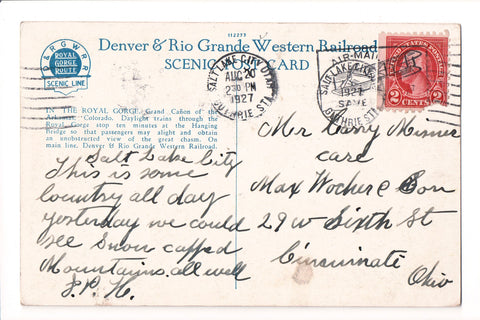 112277
D. & R. G. W. R. R.
ROYAL GORGE ROUTE
SCENIC LINE
Denver & Rio Grande Western Railroad
SCENIC POST CARD
IN THE ROYAL GORGE, Grand Cañon of the
Arkansas, Colorado. Daylight trains through the
Royal Gorge stop ten minutes at the Hanging
Bridge so that passengers may alight and obtain
an unobstructed view of the great chasm. On
main line, Denver & Rio Grande Western Railroad.
SALT LAKE CITY, UTAH
AUG 20
2 30 PM
1927
GUTHRIE STA.
AIR-MAIL
SALT LAKE
1927
SAVE
GUTHRIE STA.
UNITED STATES POSTAGE
2 CENTS 2
Salt Lake City
This is some
country all day
yesterday we could
see Snow capped
Mountains. all well
J. P. H.
Mr Harry Misner
care
Max Wocher & Son
29 W Sixth St
Cincinnate
Ohio